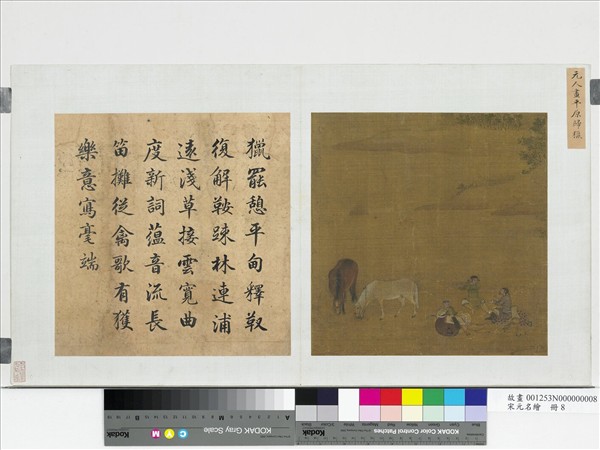 元人畫平原歸獵
獵罷憩平甸釋馭
復解鞍踈林連浦
遠淺草接雲寬曲
度新詞蘊音流長
笛攤從禽歌有獲
樂意寫毫端
Kodak Gray Scale
KODAK Color Control Patches
故畫 001253N000000008
宋元名繪 冊 8